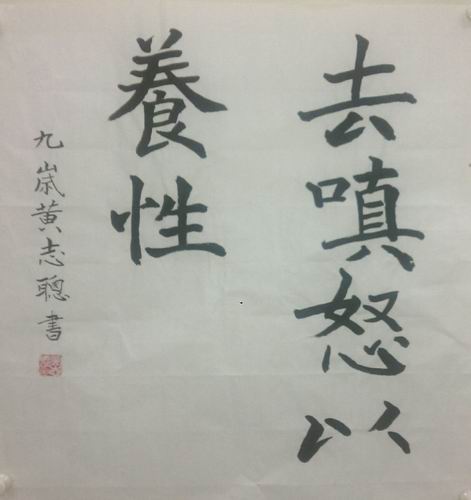 去嗔怒以
養性
九歲黃志聰書